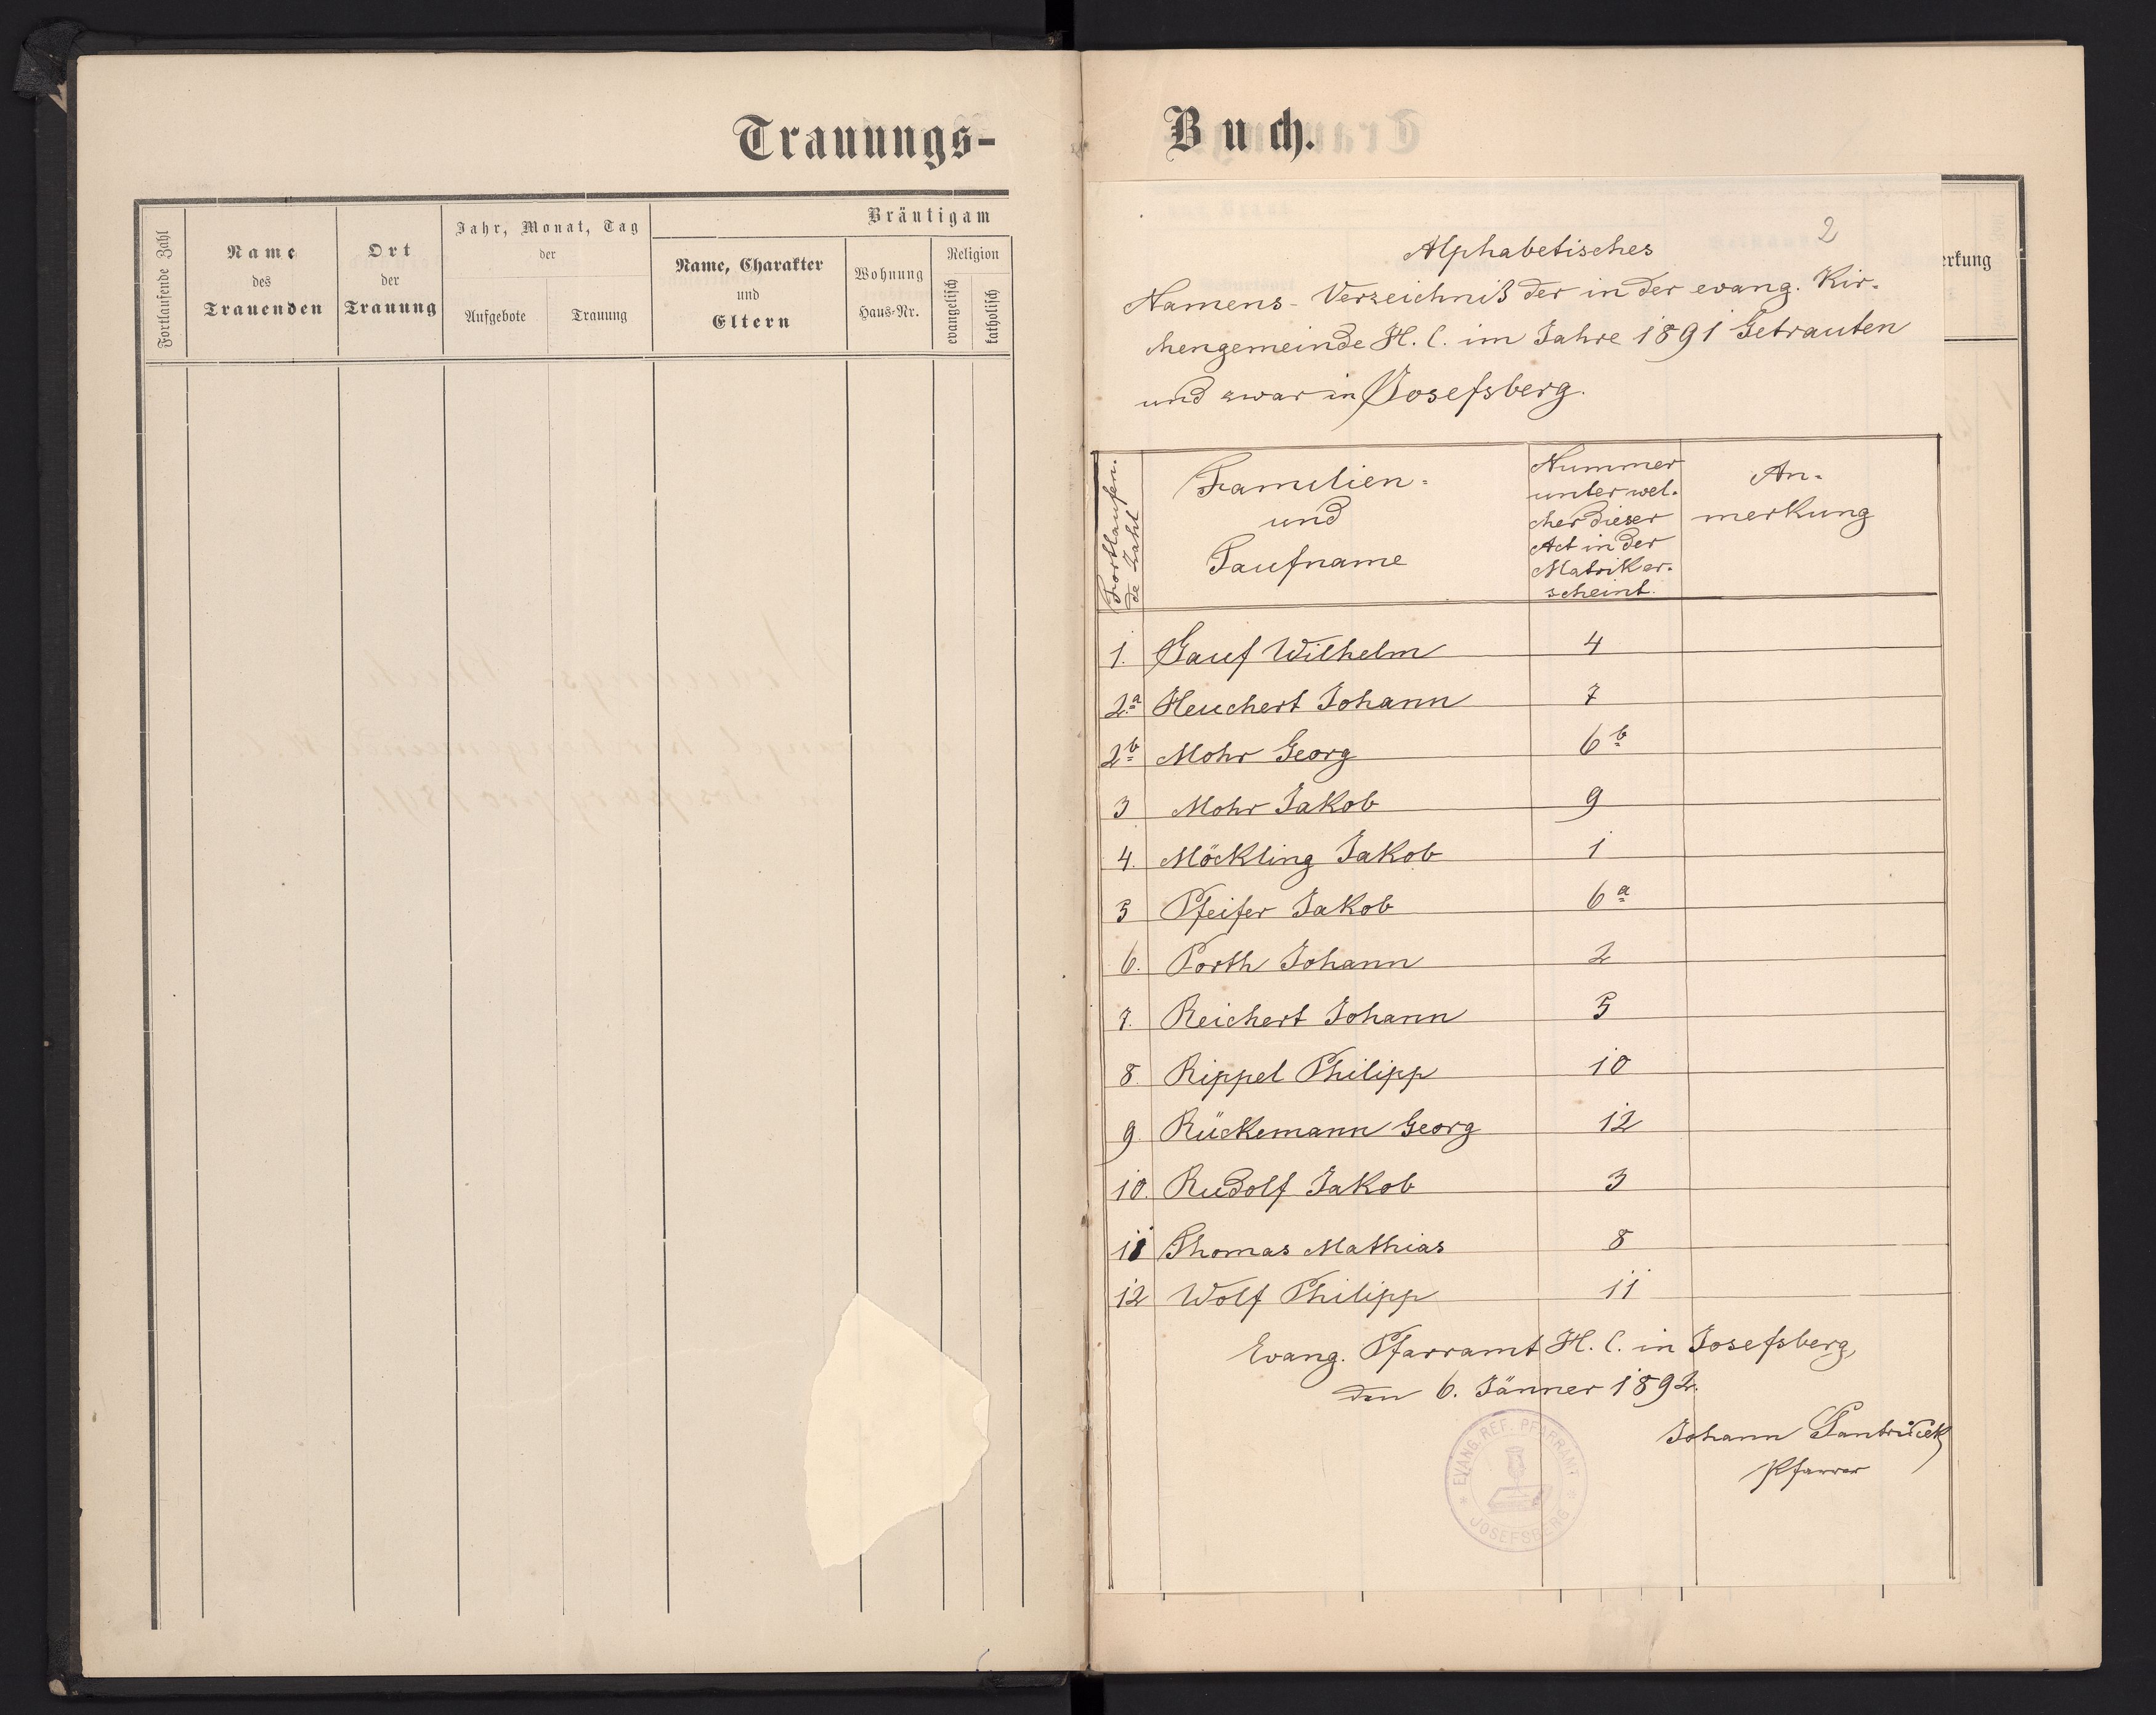 Trauungs-
Fortlaufende Zahl
Name
des
Trauenden
Ort
der
Trauung
Jahr, Monat, Tag
der
Aufgebote
Trauung
Bräutigam
Name, Charakter
und
Eltern
Wohnung
Haus-Nr.
Religion
evangelisch
katholisch
Buch.
erkung
2
Alphabetisches
Namens-Verzeichniß der in der evang. Kir-
chengemeinde H. C. im Jahre 1891 Getrauten
und zwar in Josefsberg.
Fortlaufen-
de Zahl
Familien-
und
Taufname
Nummer
unter wel-
cher dieser
Act in der
Matrik er-
scheint.
An-
merkung
1. Gauf Wilhelm 4
2a Heuchert Johann 7
2b Mohr Georg 6b
3 Mohr Jakob 9
4. Möckling Jakob 1
5 Pfeifer Jakob 6a
6. Porth Johann 2
7. Reichert Johann 5
8. Rippel Philipp 10
9. Rückemann Georg 12
10. Rudolf Jakob 3
11 Thomas Mathias 8
12 Wolf Philipp 11
Evang. Pfarramt H. C. in Josefsberg,
den 6. Jänner 1892.
Johann
Pfarrer
EVANG. REF. PFARRAMT
JOSEFSBERG